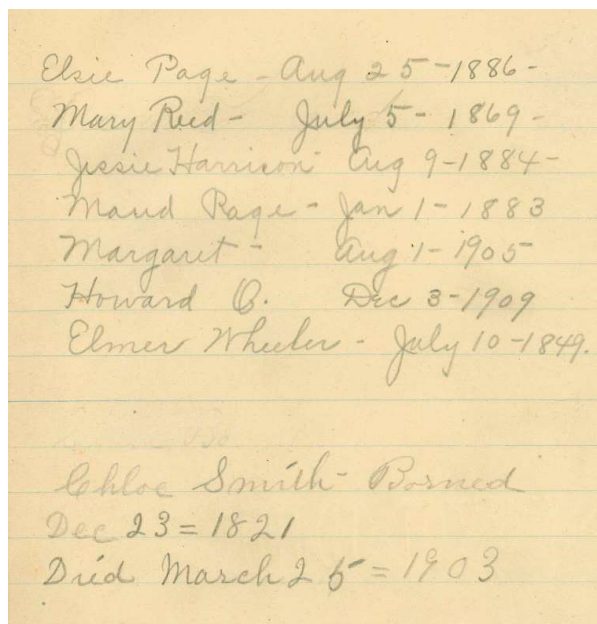 Elsie Page - Aug 25-1886-
Mary Reed - July 5 - 1869-
Jessie Harrison Aug 9-1884-
Maud Page - Jan 1-1883
Margaret - Aug 1-1905
Howard O. Dec 3-1909
Elmer Wheeler - July 10-1849.
Chloe Smith - Borned
Dec 23=1821
Died March 25=1903